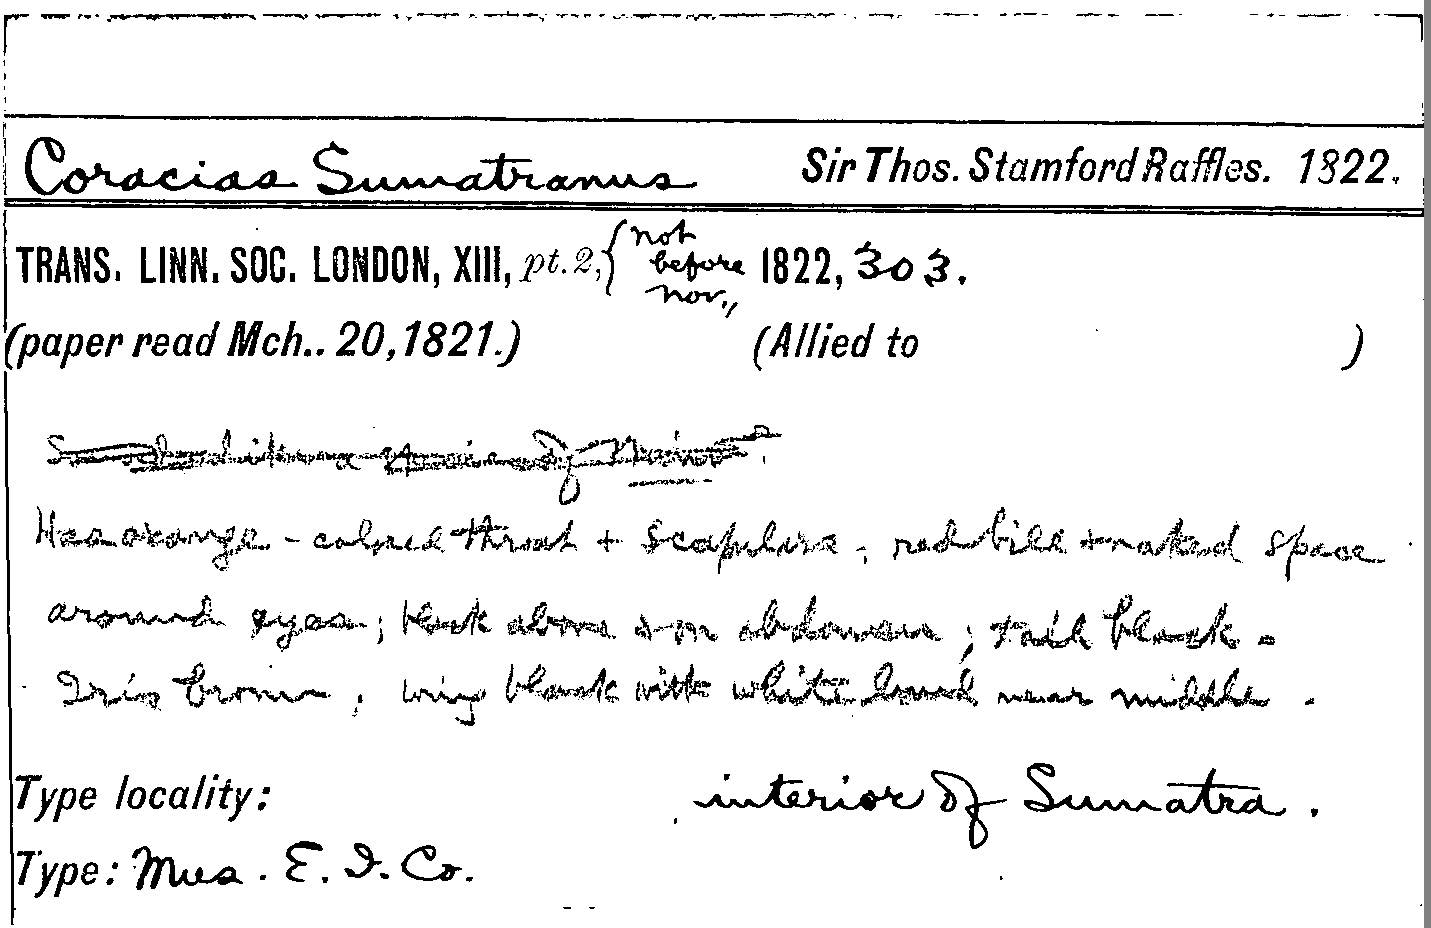 Coracias Sumatranus Sir Thos. Stamford Raffles. 1822.
TRANS. LINN. SOC. LONDON, XIII, pt. 2, { not before Nov., 1822, 303.
(paper read Mch.. 20, 1821.) (Allied to )
of
Has orange-colored throat + scapulars, red bill + naked space
around eyes; black above + on abdomen; tail black -
Iris brown, wing black with white band near middle.
Type locality: interior of Sumatra.
Type: Mus. E. I. Co.